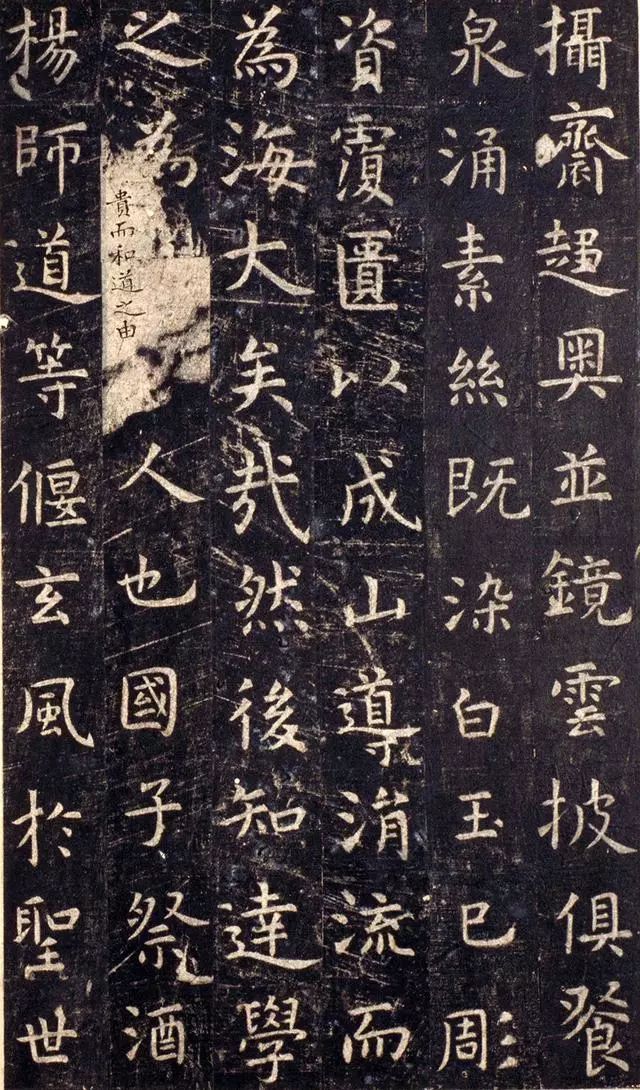 攝齋超奧並鏡雲披俱餐
泉涌素絲既染白玉已彫
資覆匱以成山導涓流而
為海大矣哉然後知達學
之為貴而和道之由人也國子祭酒
楊師道等偃玄風於聖世